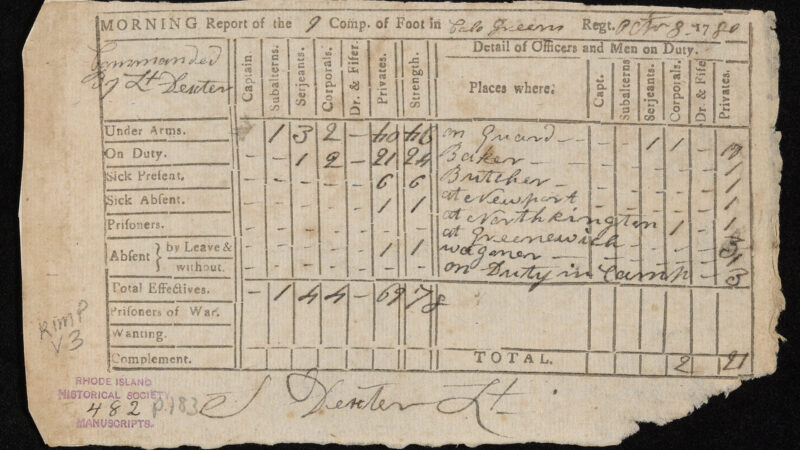 MORNING Report of the 9 Comp. of Foot in Colo Greens Regt. Octor 8 1780
Commanded
By Lt Dexter
Captain. Subalterns. Serjeants. Corporals. Dr. & Fifer. Privates. Strength.
Detail of Officers and Men on Duty.
Places where. Capt. Subalterns Serjeants. Corporals. Dr. & Fife Privates.
Under Arms. - 1 3 2 - 40 46 on Guard - - 1 1
On Duty. - - 1 2 - 21 24 Baker - - - - - 1
Sick Present. - - - - - 6 6 Butcher - - - - - 1
Sick Absent. - - - - - 1 1 at Newport - - - - - 1
Prisoners. - - - - - - - at Northkington 1 - 1
at Greenewich
Absent } by Leave & - - - - - 1 1 wagoner - - - - - 1
without. - - - - - - - on Duty in Camp - 3
Total Effectives. - 1 4 4 - 69 78
Prisoners of War.
Wanting.
Complement. TOTAL. 2 21
S Dexter Lt.
RIMP
V3
RHODE ISLAND
HISTORICAL SOCIETY
482 p.183
MANUSCRIPTS.